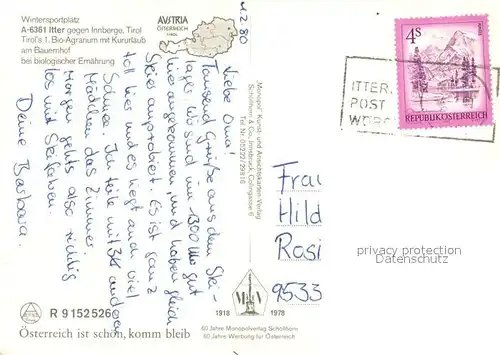 Wintersportplatz
A-6361 Itter gegen Innberge, Tirol
Tirol's 1. Bio-Agrarium mit Kururlaub
am Bauernhof
bei biologischer Ernährung
AUSTRIA
ÖSTERREICH
2.80
Liebe Oma!
Tausend Grüße aus dem Ski-
lager. Wo sind um 1300 Uhr gut
hier angekommen, und haben gleich
Skier ausprobiert. Es ist ganz
toll hier und es liegt auch viel
Schnee. Ich teile mit 3 anderen
Mädchen das Zimmer.
Morgen gehts also richtig
los mit Skifahren.
Deine Barbara.
"Monopol" Kunst- und Ansichtskarten-Verlag
Schöllhorn & Co., Innsbruck
Tel. Nr. 05222/29816
4S
REPUBLIK ÖSTERREICH
ITTER,
POST
WÖRGL
Frau
Hild
Rosi
9533
privacy protection
AKPOOL.DE
R 9152526
1918
1978
60 Jahre Monopolverlag Schöllhorn
60 Jahre Werbung für Österreich
Österreich ist schön, komm bleib